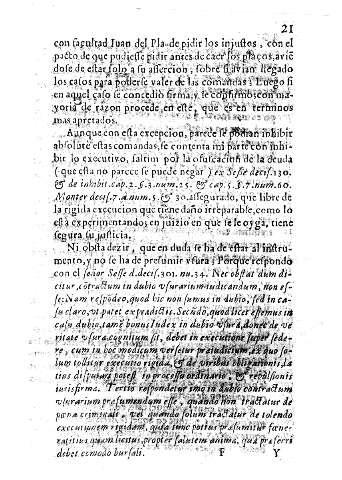 21
con facultad Juan del Pla de pidir los injustos, con el
pacto de que pudiesse pidir antes de caer los plaços, aviē
dose de estar solo a su assercion, sobre si avian llegado
los casos para poderse valer de las comandas; Luego si
en aquel caso se concedio firma, y se confirmò; con ma
yoria de razon procede en este, que es en terminos
mas apretados.
Aunque con esta excepcion, parece se podian inhibir
absolute estas comandas, se contenta mi parte con inhi-
bir lo executivo, saltim por la ofuscacion de la deuda
(que esta no parece se puede negar) ex Sesse decis. 130.
& de inhibit. cap. 2. §. 3. num. 25. & cap. 5. §. 7. num. 60.
Monter decis. 7. à num. 5. & 30. assegurado, que libre de
la rigida execucion que tiene daño irreparable, como lo
està experimentando; en juizio en que se le oyga, tiene
segura su justicia.
Ni obsta dezir, que en duda se ha de estar al instru-
mento, y no se ha de presumir usura; Porque respondo
con el señor Sesse d. decis. 301. nu. 34. Nec obstat dum di
citur, cōtractum in dubio usurarium iudicandum, non es-
se: Nam respōdeo, quod hic non sumus in dubio, sed in ca-
su claro, ut patet ex praedictis. Secūdò, quod licet essemus in
casu dubio, tamē bonus Iudex in dubio usurae, donec de ve
ritate usurae cognitum sit, debet in executione super sede-
re, cum in hoc modicum versetur praeiudicium, ex quo so-
lum tollitur executio, & de viribus obligationis, la
tius disputari potest in processu ordinario, &
iurisfirma. Tertiò respondetur imò in dubio contractum
usurarium praesumendum esse, quando non tractatur de
poena criminali, vel quando solum tractatur de tolendo
executionem quidam, quia tunc potius praesumitur foene-
ratitius quam licitus, propter salutem animae, quae praeferri
debet comodo bursali.
F Y